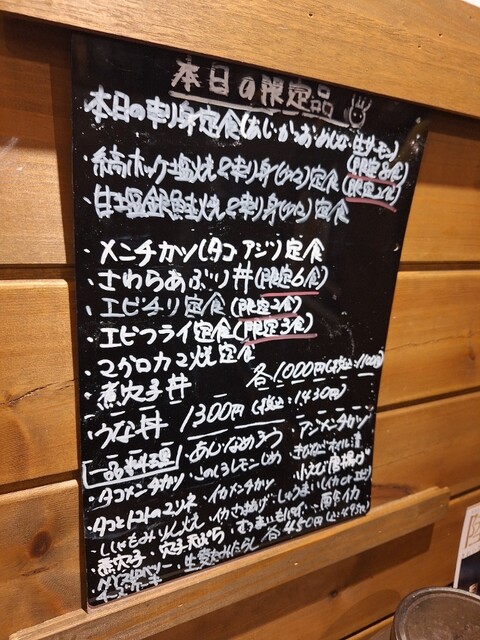 本日の限定品
本日の刺身定食(あじ・かつお・めじな・生サーモン)
(限定8食)
・縞ホッケ塩焼&刺身(小)定食(限定2食)
・甘塩銀鮭焼&刺身(小)定食
・メンチカツ(タコ、アジ)定食
・さわらあぶり丼(限定6食)
・エビチリ定食(限定2食)
・エビフライ定食(限定3食)
・マグロカマ焼定食
・煮穴子丼 各1000円(税込1100円)
・うな丼 1300円(税込1430円)
一品料理 ・あじなめろう ・アジメンチカツ
・タコメンチカツ ・このしろレモンじめ
・タコとトマトのマリネ ・イカメンチカツ ・小えび唐揚げ
・ししゃもみりん焼 ・イカさつま揚げ ・しゅうまい
・煮穴子 ・穴子天ぷら 各450円